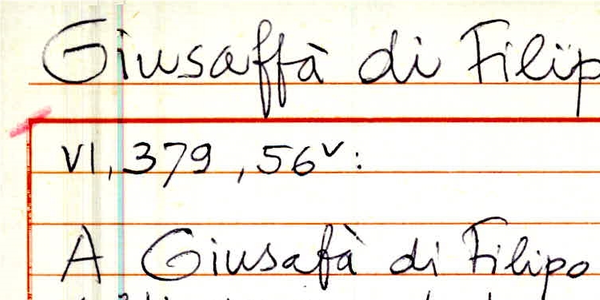 Giusaffà di Filip
VI, 379, 56v:
A Giusafà di Filipo